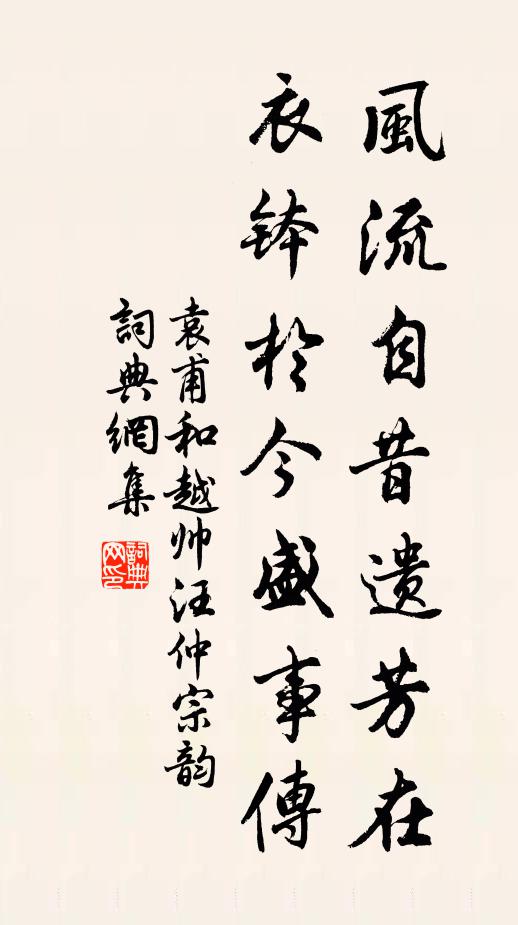 風流自昔遺芳在
衣鉢於今盛事傳
袁甫和越帅汪仲宗韵
詞典網集
詞典
网印